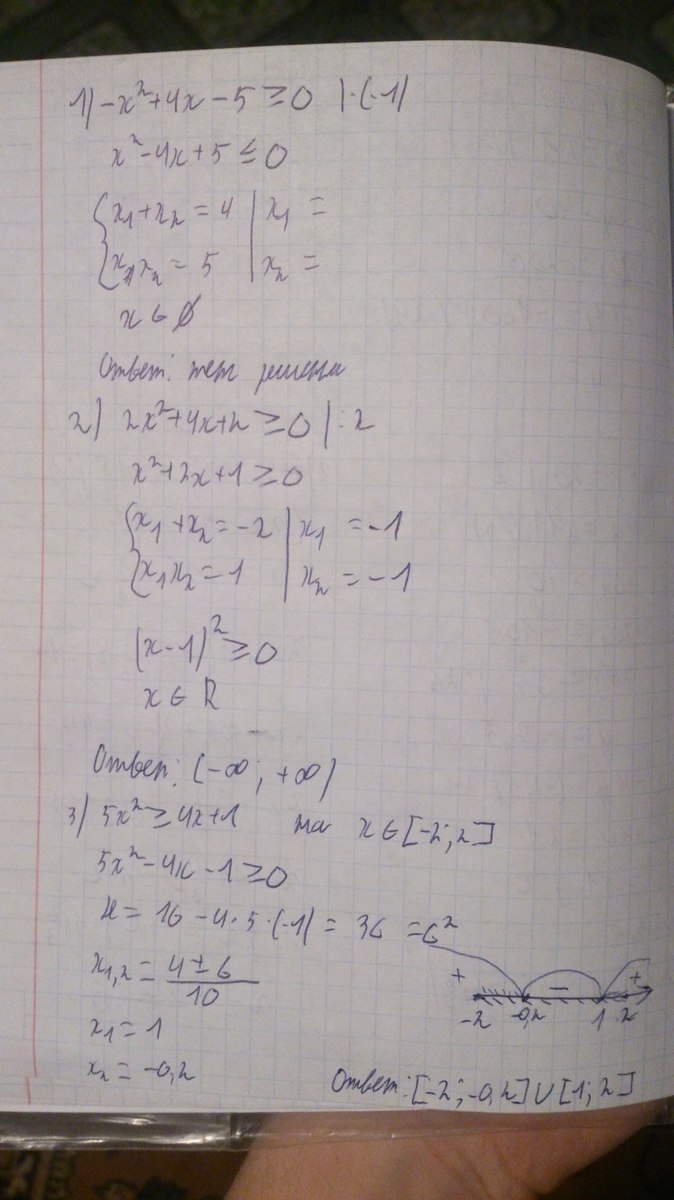 1) -x²+4x-5≥0 |·(-1)
x²-4x+5≤0
{x₁+x₂=4 | x₁=
{x₁x₂=5 | x₂=
x∈∅
Ответ: нет решения
2) 2x²+4x+2≥0 |:2
x²+2x+1≥0
{x₁+x₂=-2 | x₁=-1
{x₁x₂=1 | x₂=-1
(x-1)²≥0
x∈R
Ответ: (-∞; +∞)
3) 5x²≥4x+1 на x∈[-2;2]
5x²-4x-1≥0
D=16-4·5·(-1)=36=6²
x₁,₂=4±6/10
+ − +
-2 -0,2 1 2
x₁=1
x₂=-0,2
Ответ: [-2;-0,2]∪[1;2]